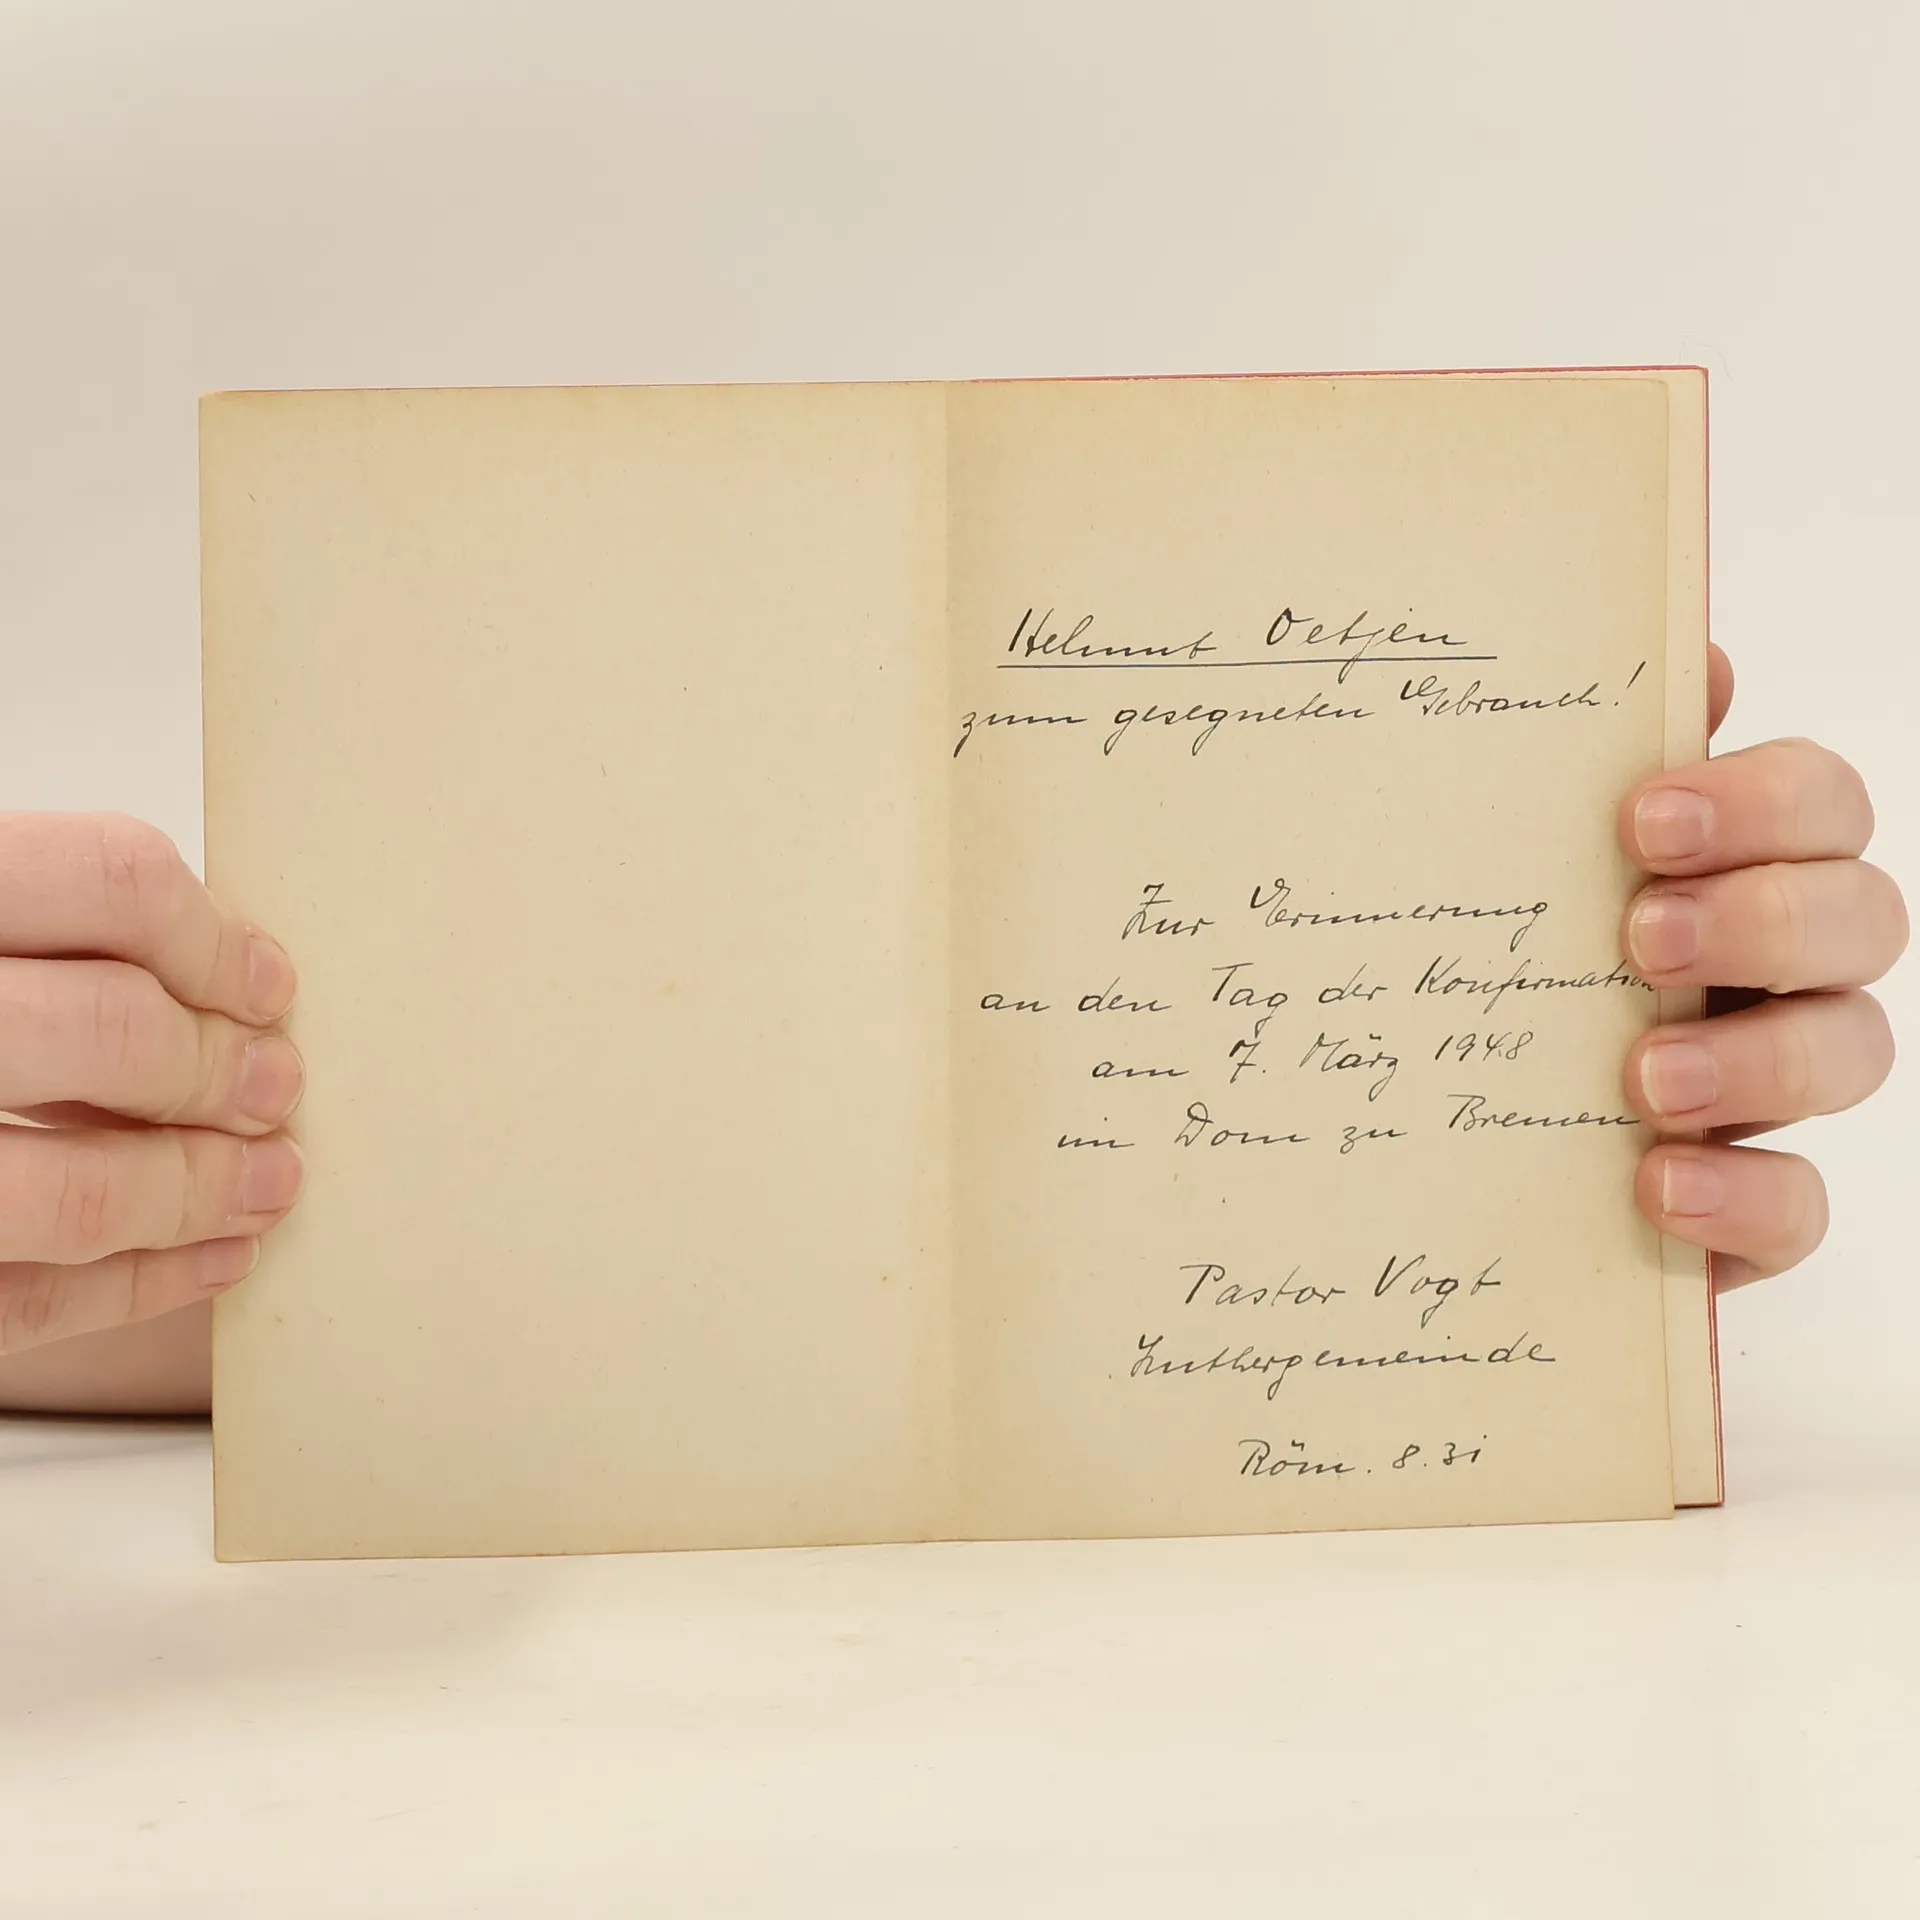 Helmut Oetjen
zum gesegneten Gebrauch!
Zur Erinnerung
an den Tag der Konfirmation
am 7. März 1948
im Dom zu Bremen
Pastor Vogt
Luthergemeinde
Röm. 8.31